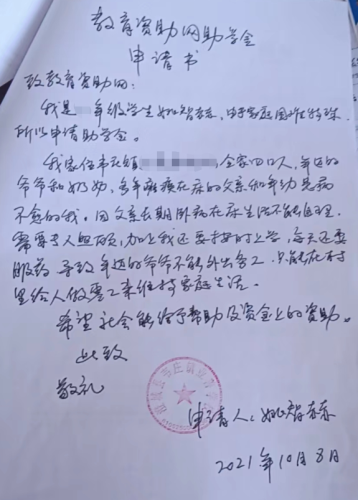 教育资助网助学金
申请书
致教育资助网:
我是 年级学生姚智森,由于家庭困难特殊,
所以申请助学金。
我家住韦庄镇 全家四口人,年迈的
爷爷和奶奶,多年瘫痪在床的父亲和年幼患病
不愈的我。因父亲长期卧病在床生活不能自理,
需要专人照顾,加上我还要按时上学,每天还要
服药 导致年迈的爷爷不能外出务工 只能在村
里给人做零工来维持家庭生活。
希望社会能给予帮助及资金上的资助。
此致
敬礼
申请人:姚智森
2021年10月8日